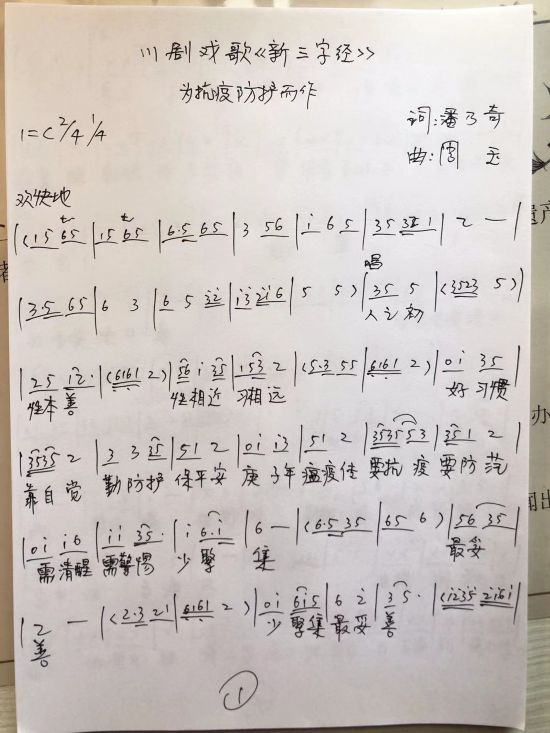 川剧戏歌《新三字经》
为抗疫防护而作
1=C 2/4 1/4
词:潘乃奇
曲:周 玉
欢快地
|(15 65|15 65|6·5 65|3 56|i 6 5|35 3 1|2 —|
|3·5 65|6 3|6 5 32|i3 2i6|5 5)|35 5|(3523 5)|
唱
人之初
|25 i2·|(6161 2)|56 i 35|153 2|(5·3 55|6161 2)|0i 35|
性本善 性相近 习相远 好习惯
|3535 2|3 3 35|51 2|0i i3|51 2|3535 53|351 2|
靠自觉 勤防护 保平安 庚子年 瘟疫佳 要抗疫 要防范
|0i i6|ii 35·|i 6·i|6 —|(6·5 35|65 6)|56 35|
需清醒 需警惕 少聚集 最妥
|2 —|(2·3 21|6161 2)|0i 6i5|6 2|35·|(i235 2i6i|
善 少聚集 最妥善
①